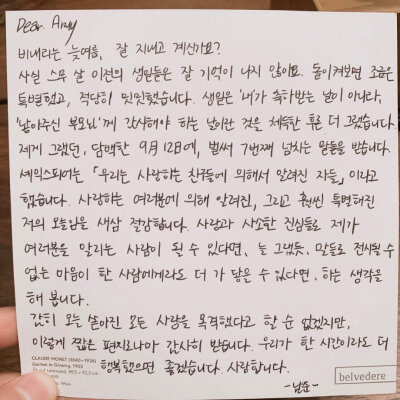 Dear. Army
비내리는 늦여름, 잘 지내고 계신가요?
사실 스무 살 이전의 생일들은 잘 기억이 나지 않아요. 돌이켜보면 조금은
특별했고, 적당히 밋밋했습니다. 생일은 '내'가 축하받는 날이 아니라,
'낳아주신 부모님'께 감사해야 하는 날이란 것을 체득한 후론 더 그랬습니다.
제게 그랬던, 담백한 9월 12일에, 벌써 7번째 넘치는 말들을 받습니다.
셰익스피어는 「우리는 사랑하는 친구들에 의해서 알려진 자들」이라고
했습니다. 사랑하는 여러분에 의해 알려진, 그리고 훨씬 특별해진
저의 오늘임을 새삼 절감합니다. 사랑과 사소한 진심들로 제가
여러분을 알리는 사람이 될 수 있다면, 늘 그랬듯, 말들로 전식될 수
없는 마음이 한 사람에게라도 더 가 닿을 수 있다면, 하는 생각을
해 봅니다.
감히 오늘 쏟아진 모든 사랑을 목격했다고 할 순 없겠지만,
이렇게 짧은 편지로나마 감사히 받습니다. 우리가 한 시간이라도 더
행복했으면 좋겠습니다. 사랑합니다.
-남준-
CLAUDE MONET (1840–1926)
Garten in Giverny, 1902
Leinwand, 89,5 × 92,3 cm
Wien
belvedere